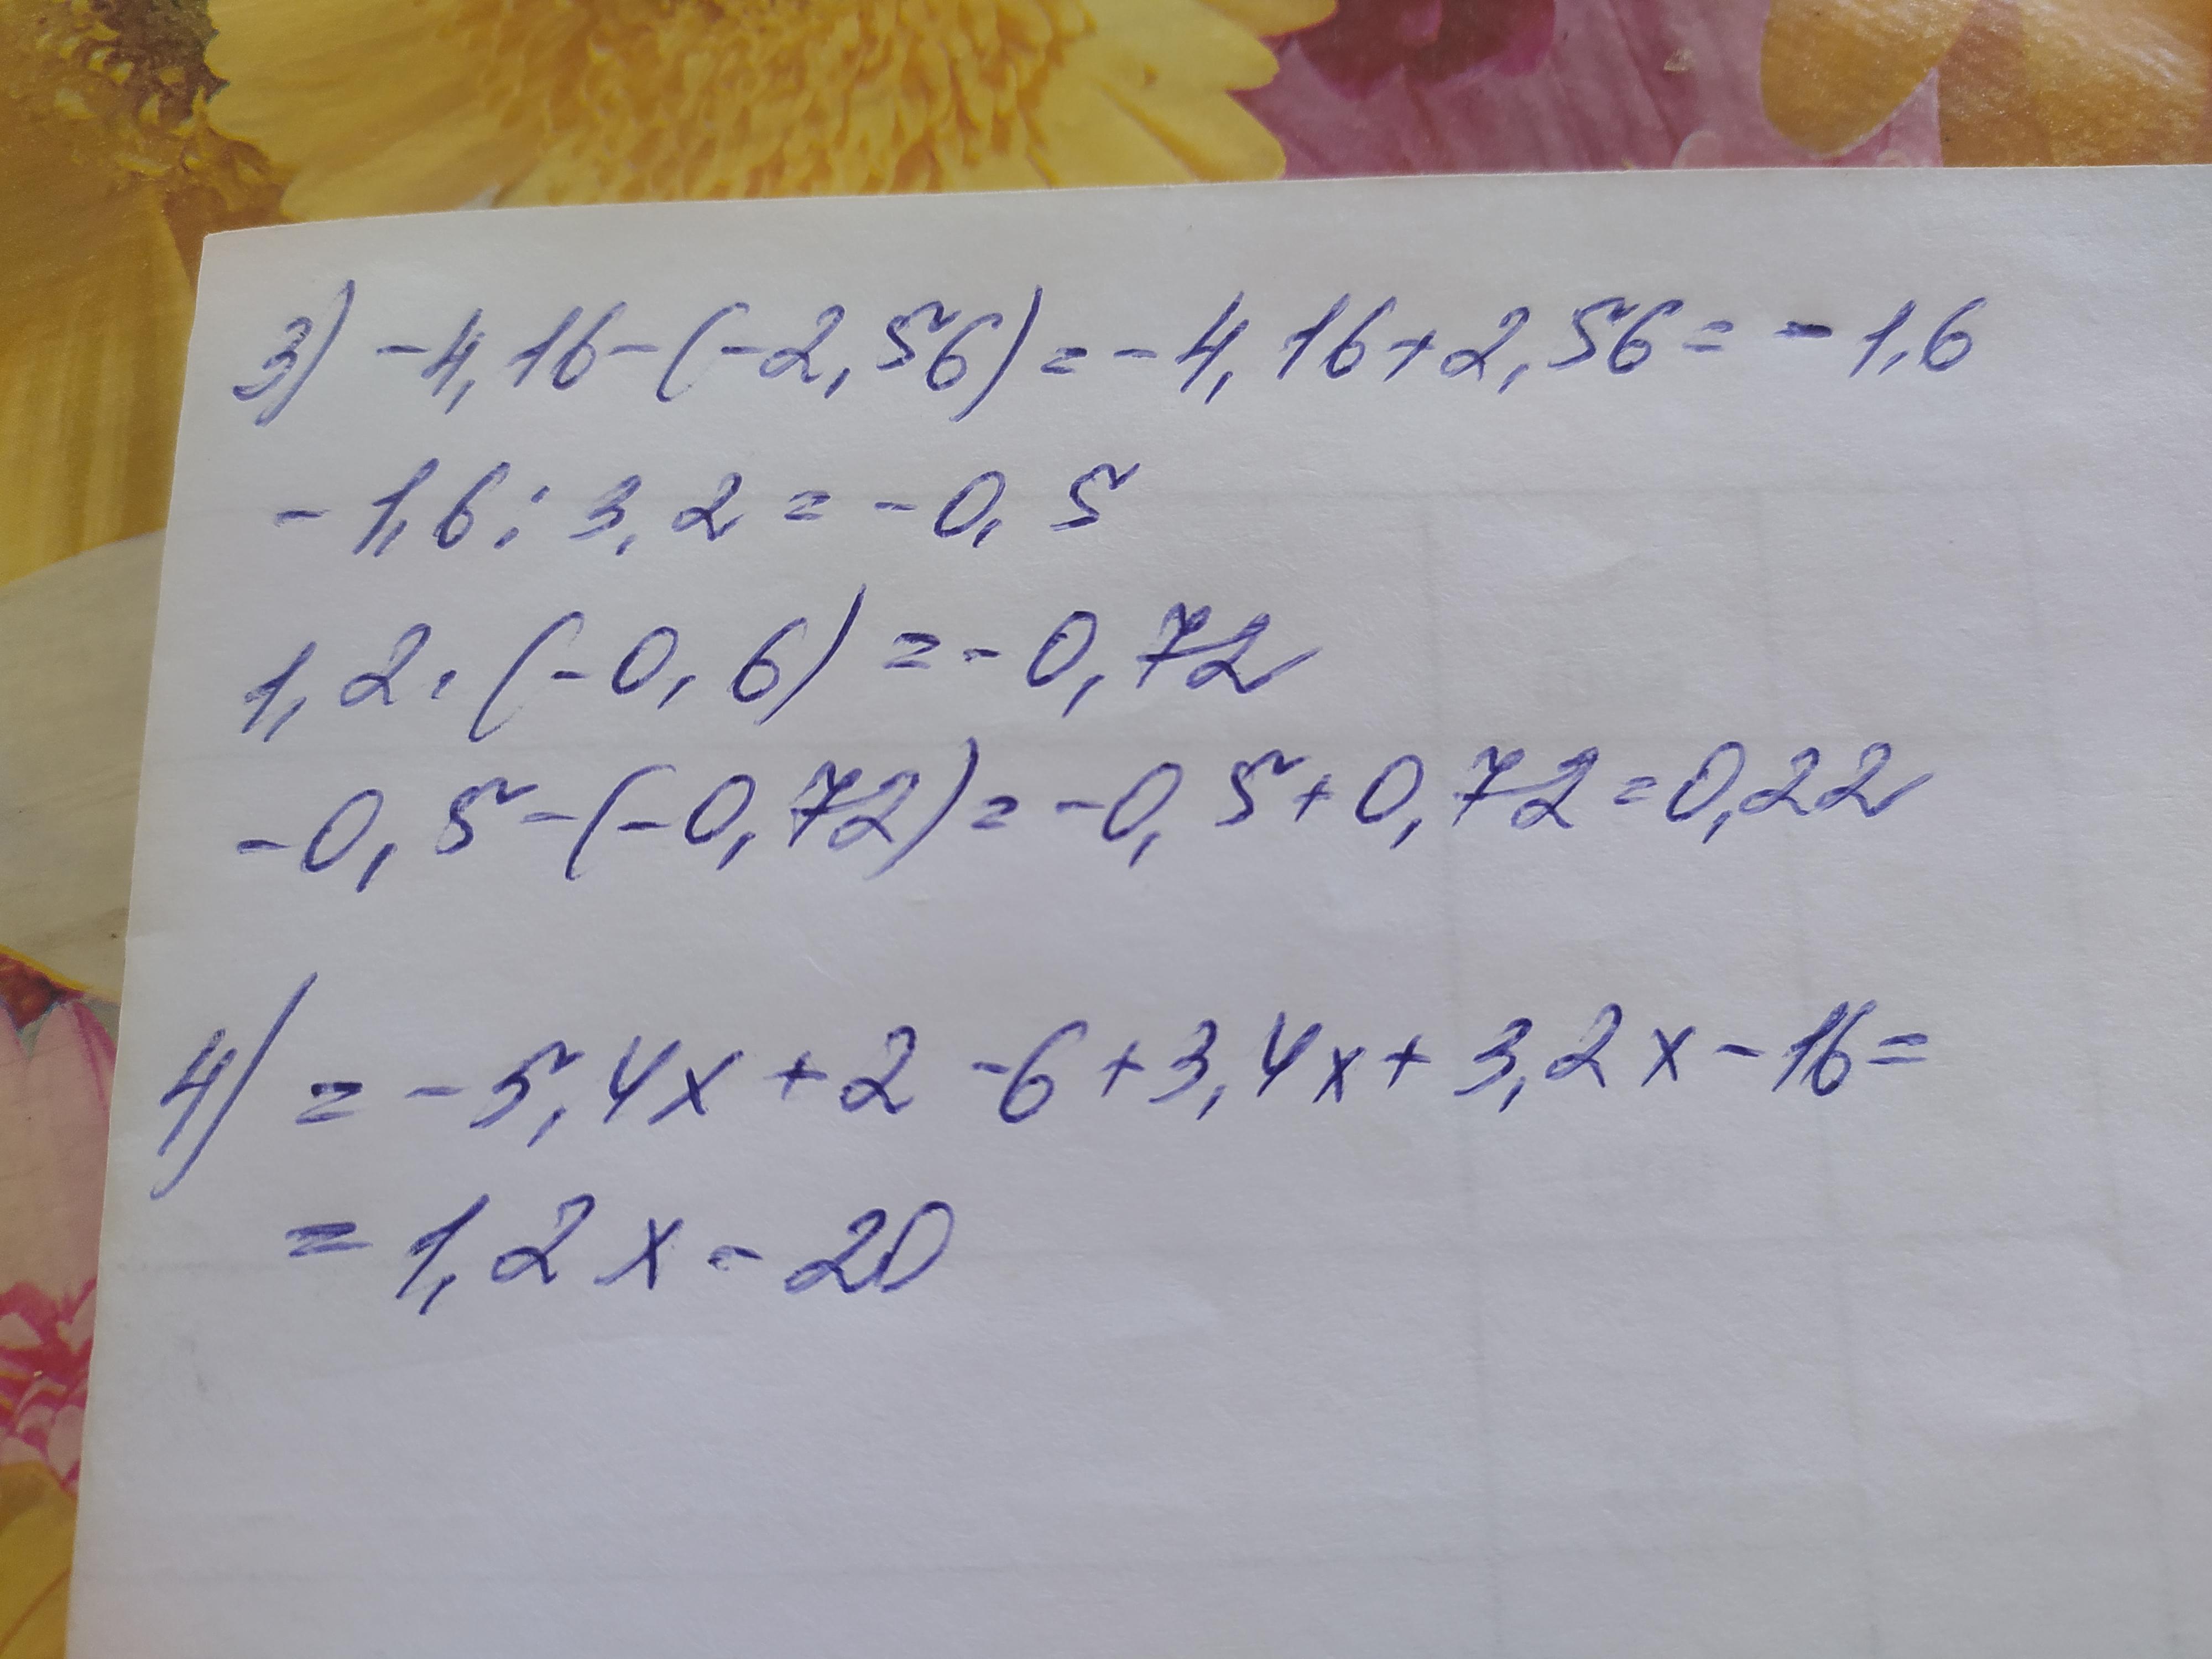 3) -4,16-(-2,56)=-4,16+2,56=-1,6
-1,6:3,2=-0,5
1,2·(-0,6)=-0,72
-0,5-(-0,72)=-0,5+0,72=0,22
4) =-5,4x+2-6+3,4x+3,2x-16=
=1,2x-20